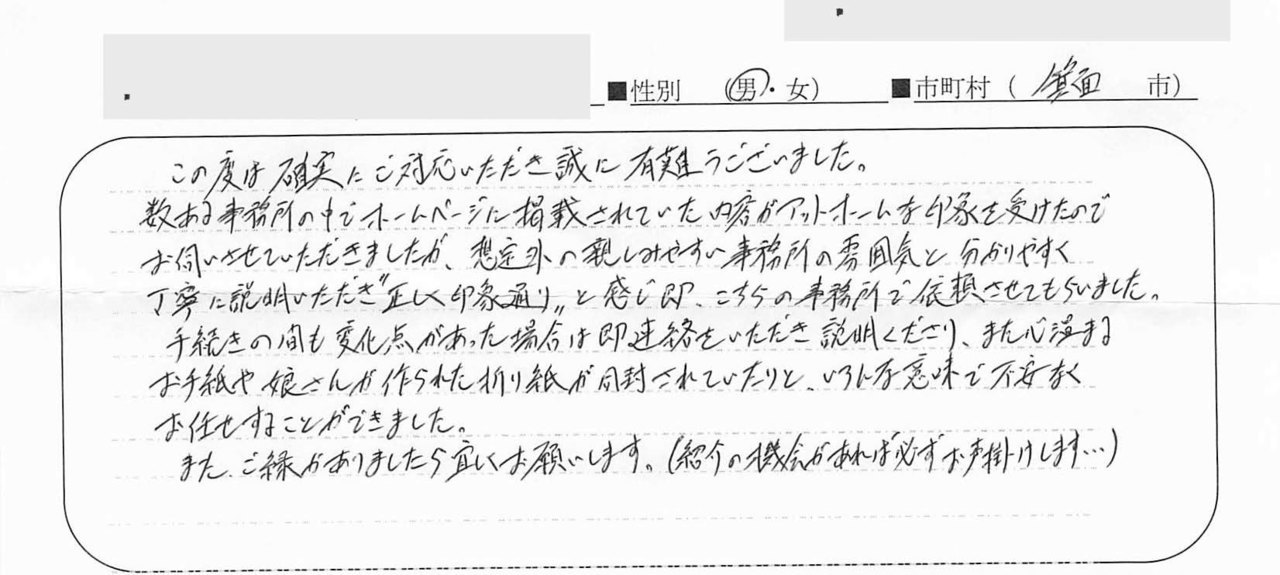 ■性別 （男・女） ■市町村（ 箕面 市）
この度は確実にご対応いただき誠に有難うございました。
数ある事務所の中でホームページに掲載されていた内容がアットホームな印象を受けたので
お伺いさせていただきましたが、想定外の親しみやすい事務所の雰囲気と分かりやすく
丁寧に説明いただき"正しく印象通り"と感じ即、こちらの事務所で依頼させてもらいました。
手続きの間も変化点があった場合は即連絡をいただき説明くださり、また心温まる
お手紙や娘さんが作られた折り紙が同封されていたりと、いろんな意味で不安なく
お任せすることができました。
また、ご縁がありましたら宜しくお願いします。（紹介の機会があれば必ずお声掛けします…）